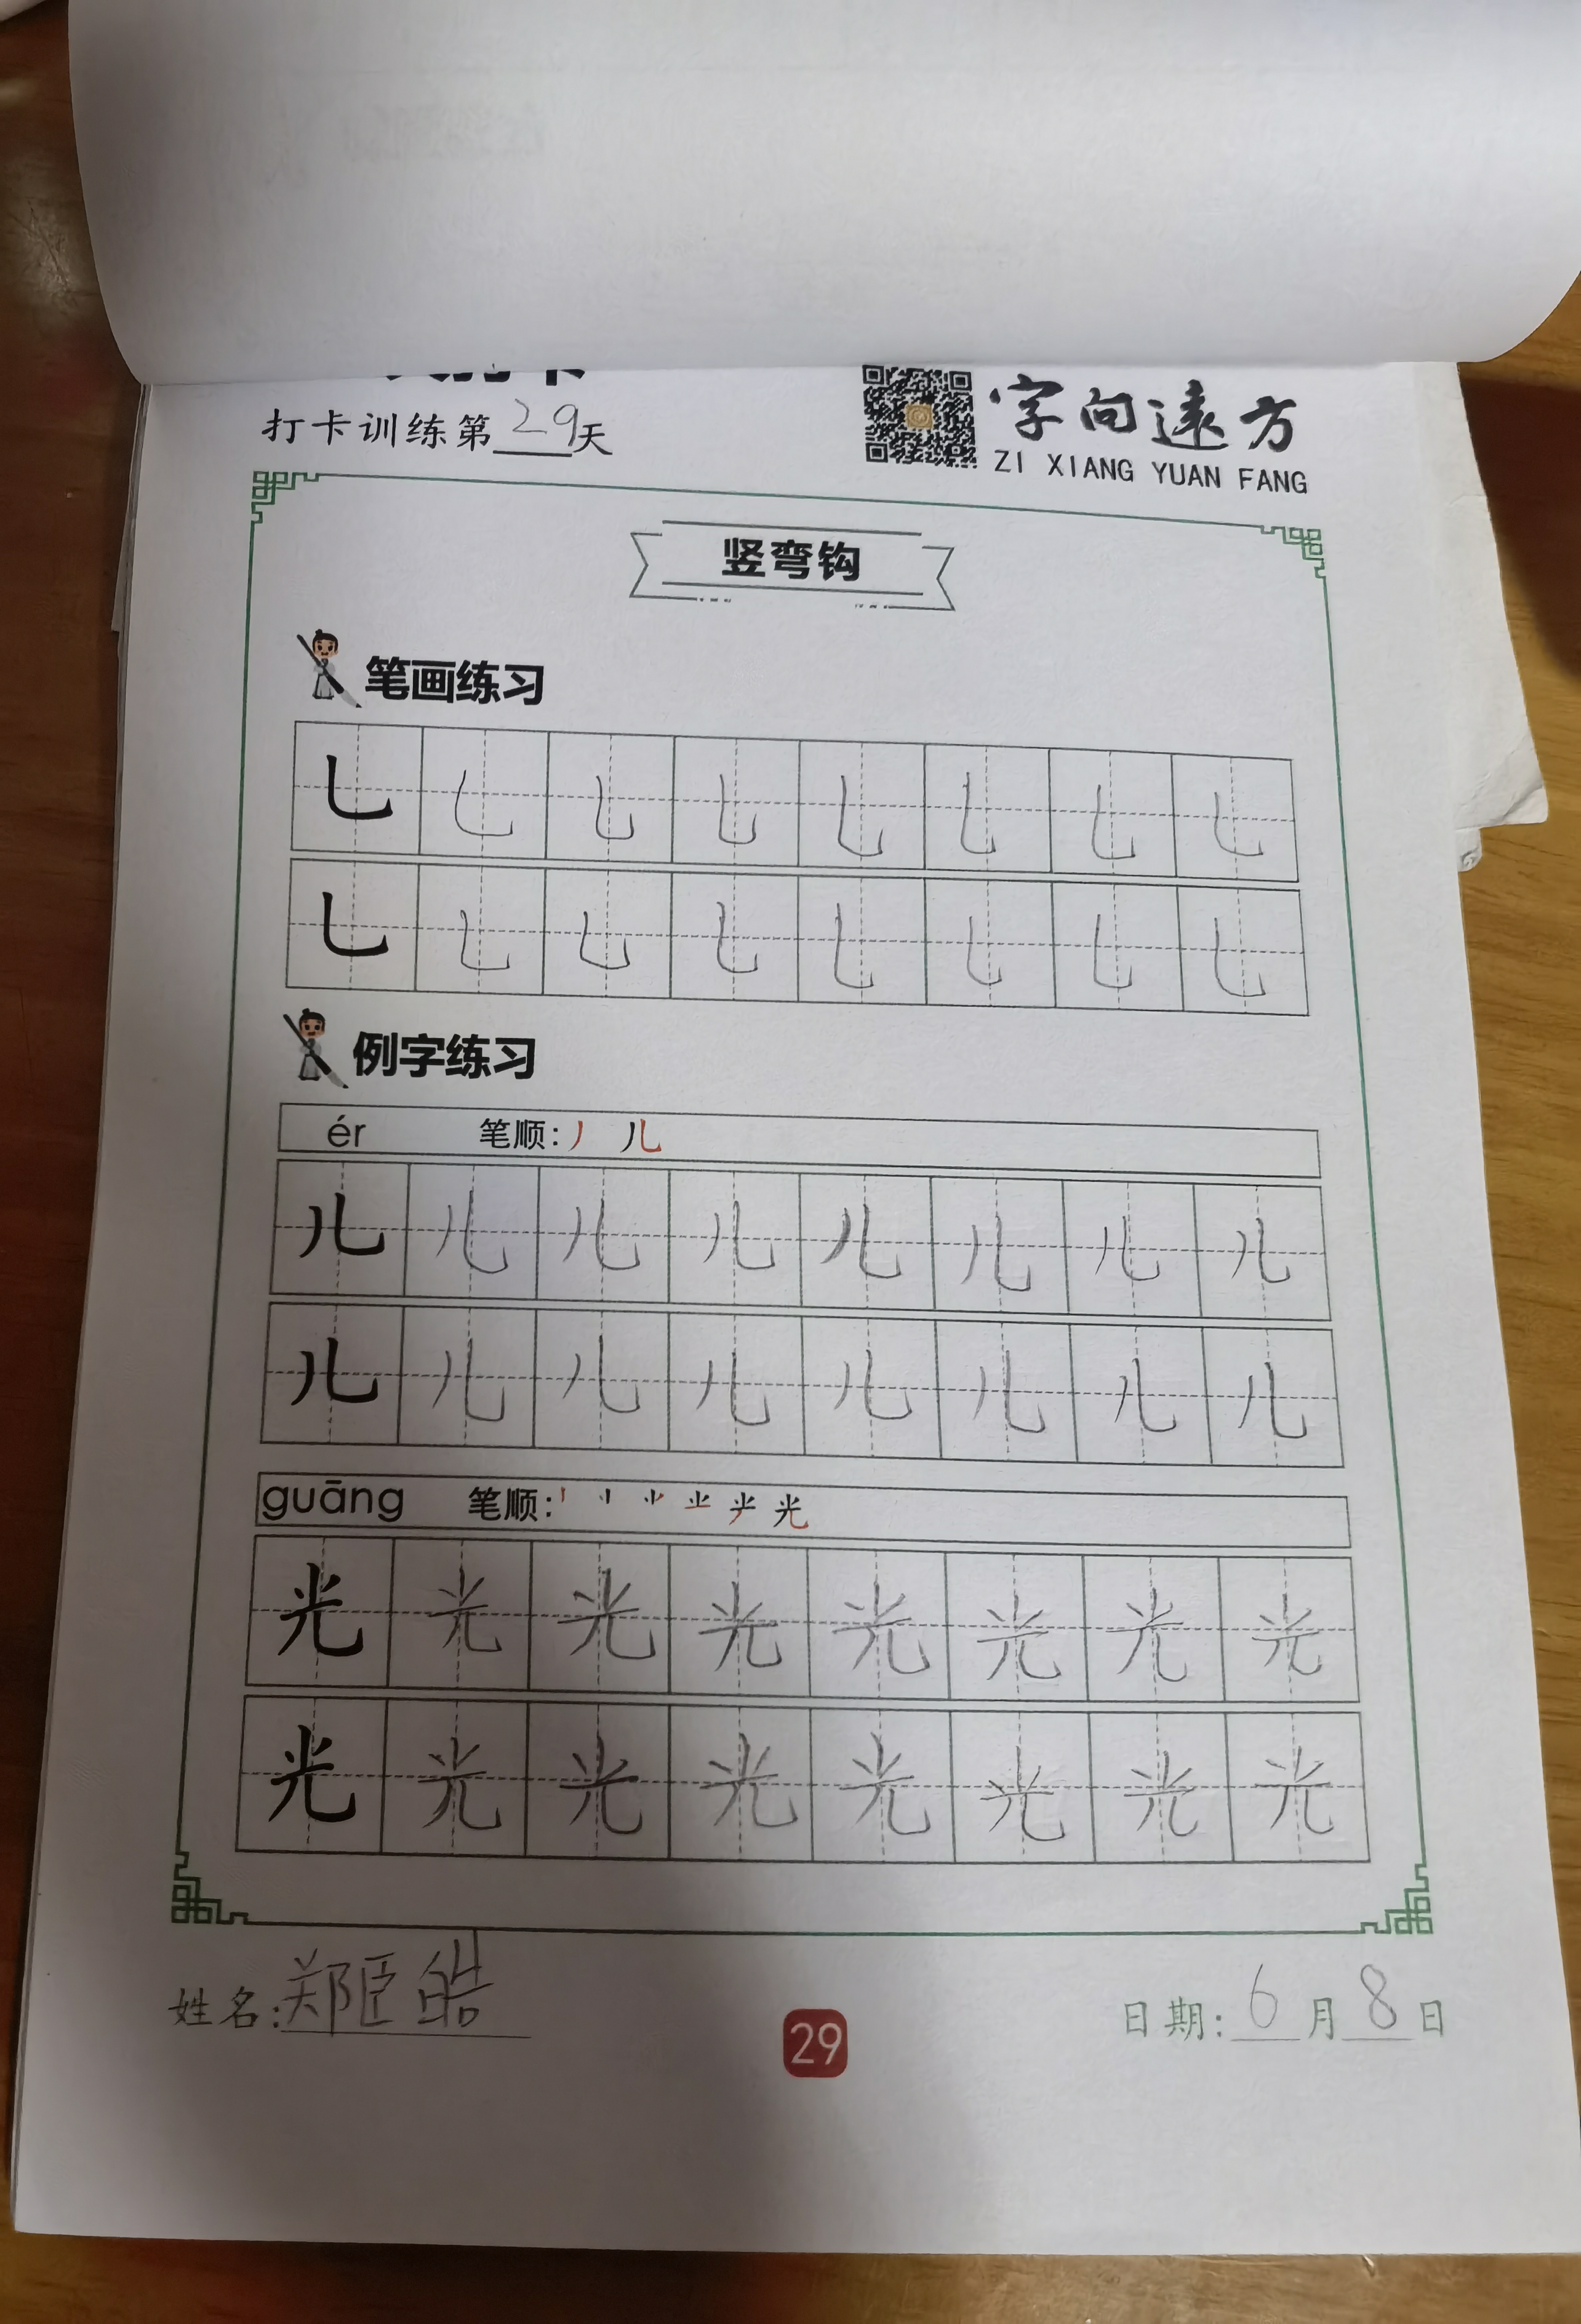 打卡训练第29天
字向遠方
ZI XIANG YUAN FANG
竖弯钩
笔画练习
乚 乚 乚 乚 乚 乚 乚 乚
乚 乚 乚 乚 乚 乚 乚 乚
例字练习
ér 笔顺: 丿 儿
儿 儿 儿 儿 儿 儿 儿 儿
儿 儿 儿 儿 儿 儿 儿 儿
guāng 笔顺: 光
光 光 光 光 光 光 光 光
光 光 光 光 光 光 光 光
姓名: 郑臣皓
29
日期: 6月8日